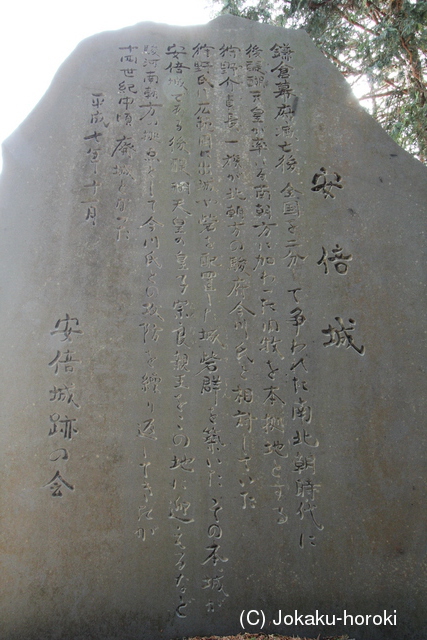 安倍城
鎌倉幕府滅亡後、全国を二分して争われた南北朝時代に
後醍醐天皇が率いる南朝方に加わった内牧を本拠地とする
狩野介貞長一族が北朝方の駿府今川氏と相対していた
狩野氏は広範囲に出城や砦を配置した城砦群を築いた その本城が
安倍城である 後醍醐天皇の皇子宗良親王をこの地に迎えるなど
駿河南朝方の拠点として今川氏との攻防を繰り返してきたが
十四世紀中頃廃城となった
平成十七年十一月
安倍城跡の会
(C) Jokaku-horoki